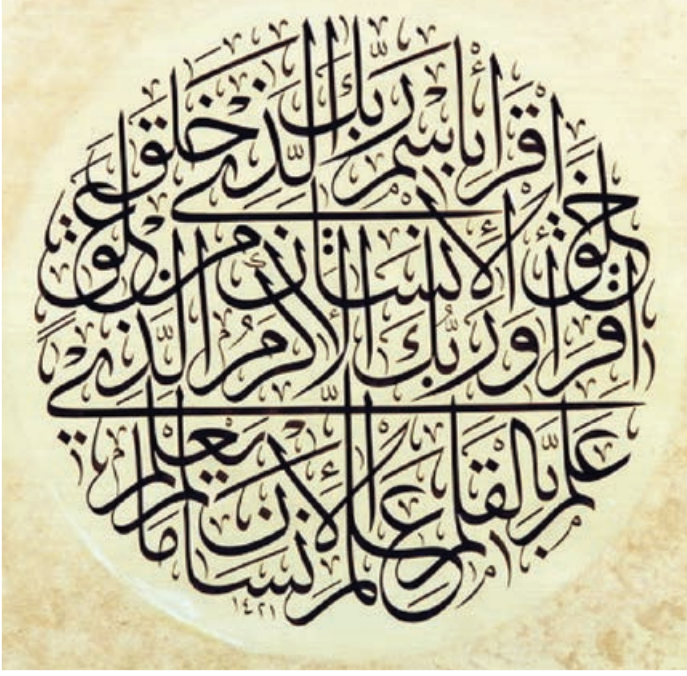 اقْرَأْ بِاسْمِ رَبِّكَ الَّذِي خَلَقَ
خَلَقَ الْإِنْسَانَ مِنْ عَلَقٍ
اقْرَأْ وَرَبُّكَ الْأَكْرَمُ الَّذِي
عَلَّمَ بِالْقَلَمِ عَلَّمَ الْإِنْسَانَ مَا لَمْ يَعْلَمْ
١٤٢١